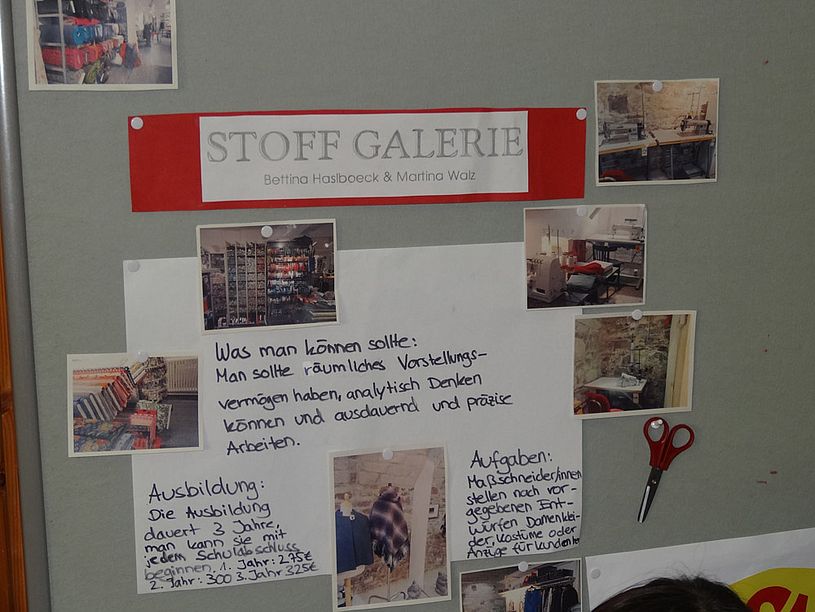 STOFF GALERIE
Bettina Haslboeck & Martina Walz
Was man können sollte:
Man sollte räumlliches Vorstellungs-
vermögen haben, analytisch Denken
können und ausdauernd und präzise
Arbeiten.
Ausbildung:
Die Ausbildung
dauert 3 Jahre,
man kann sie mit
jedem Schulabschluss
beginnen. 1. Jahr: 275€
2. Jahr: 300 3. Jahr 325€
Aufgaben:
Maßschneider/innen
stellen nach vor-
gegebenen Ent-
würfen Damenklei-
der, Kostüme oder
Anzüge für Kunden